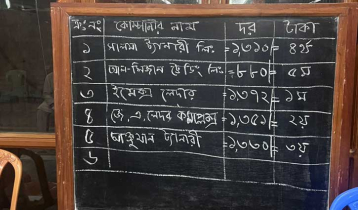 ক্রঃনং কোম্পানীর নাম দর টাকা
১ সালমা ট্যানারী লিঃ =১৩১০= ৪র্থ
২ আল-মিজান ট্রেডিং লিঃ =৮৮০= ৫ম
৩ ইমেক্স লেদার =১৩৭২= ১ম
৪ জে, এ, লেদার কমপ্লেক্স =১,৩৫১= ২য়
৫ আঞ্জুমান ট্যানারী =১,৩৩০= ৩য়
৬